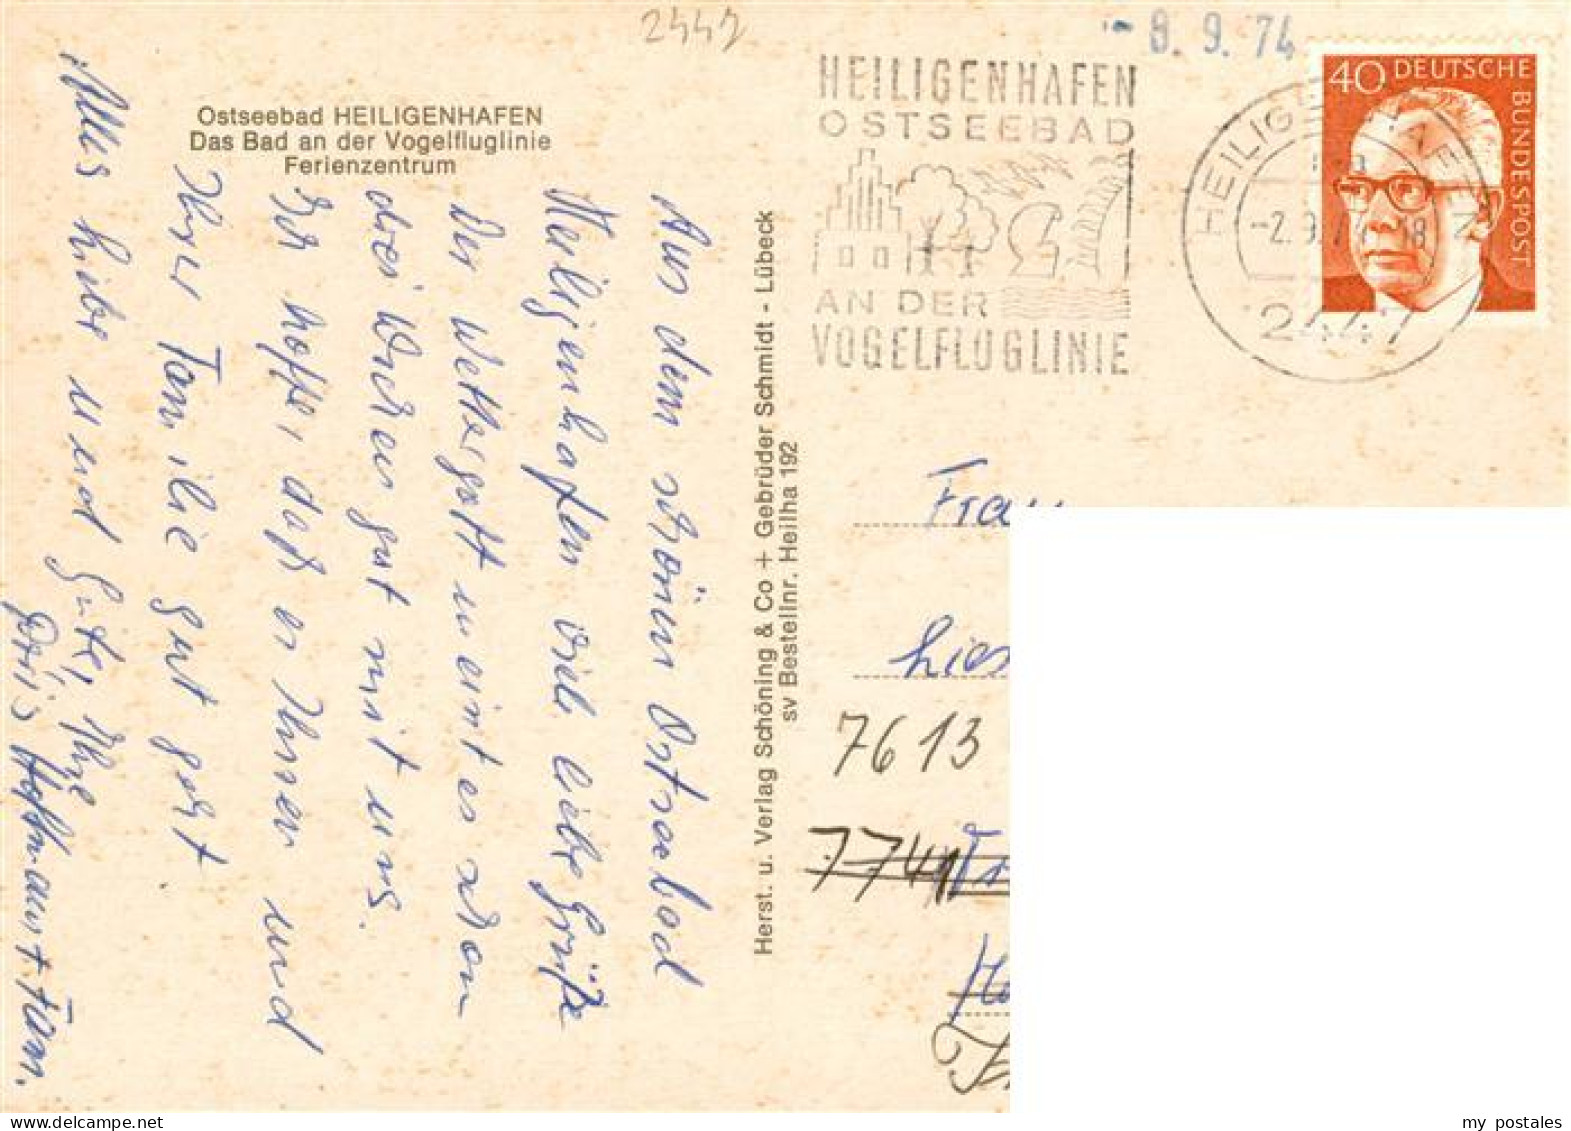 2447
- 8. 9. 74
Ostseebad HEILIGENHAFEN
Das Bad an der Vogelfluglinie
Ferienzentrum
HEILIGENHAFEN
OSTSEEBAD
AN DER
VOGELFLUGLINIE
HEILIGENHAFEN
-2.9.74 18
2447
40 DEUTSCHE
BUNDESPOST
Aus dem schönen Ostseebad
Heiligenhafen viele liebe Grüße
Der Wettergott meint es schon
drei Wochen gut mit uns.
Ich hoffe, daß es Ihnen und
Ihrer Familie gut geht
Alles Liebe und Gute, Ihre
Doris Hoffmann + Fam.
Herst. u. Verlag Schöning & Co + Gebrüder Schmidt - Lübeck
sv Bestellnr. Heilha 192
Frau
7613
7741
my postales